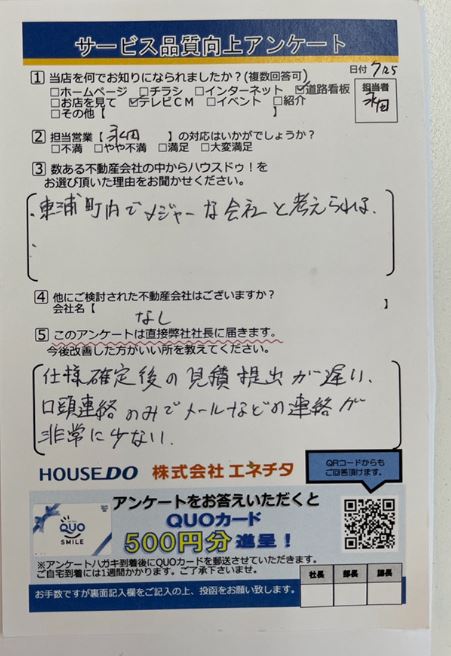 サービス品質向上アンケート
日付 7/25
1 当店を何でお知りになられましたか?(複数回答可)
□ホームページ □チラシ □インターネット ☑道路看板
□お店を見て ☑テレビCM □イベント □紹介
□その他【 】
担当者
永田
2 担当営業【 永田 】の対応はいかがでしょうか?
□不満 □やや不満 □満足 □大変満足
3 数ある不動産会社の中からハウスドゥ!を
お選び頂いた理由をお聞かせください。
・東浦町内でメジャーな会社と考えられる、
・
4 他にご検討された不動産会社はございますか?
会社名【 なし 】
5 このアンケートは直接弊社社長に届きます。
今後改善した方がいい所を教えてください。
仕様確定後の見積提出が遅い、
口頭連絡のみでメールなどの連絡が
非常に少ない、
HOUSEDO 株式会社 エネチタ
QRコードからも
ご回答頂けます。
アンケートをお答えいただくと
QUOカード
500円分 進呈!
QUO
SMILE
※アンケートハガキ到着後にQUOカードを郵送させていただきます。
ご自宅到着には1週間かかります。ご了承下さいませ。
社長 部長 課長
お手数ですが裏面記入欄をご記入の上、投函をお願い致します。